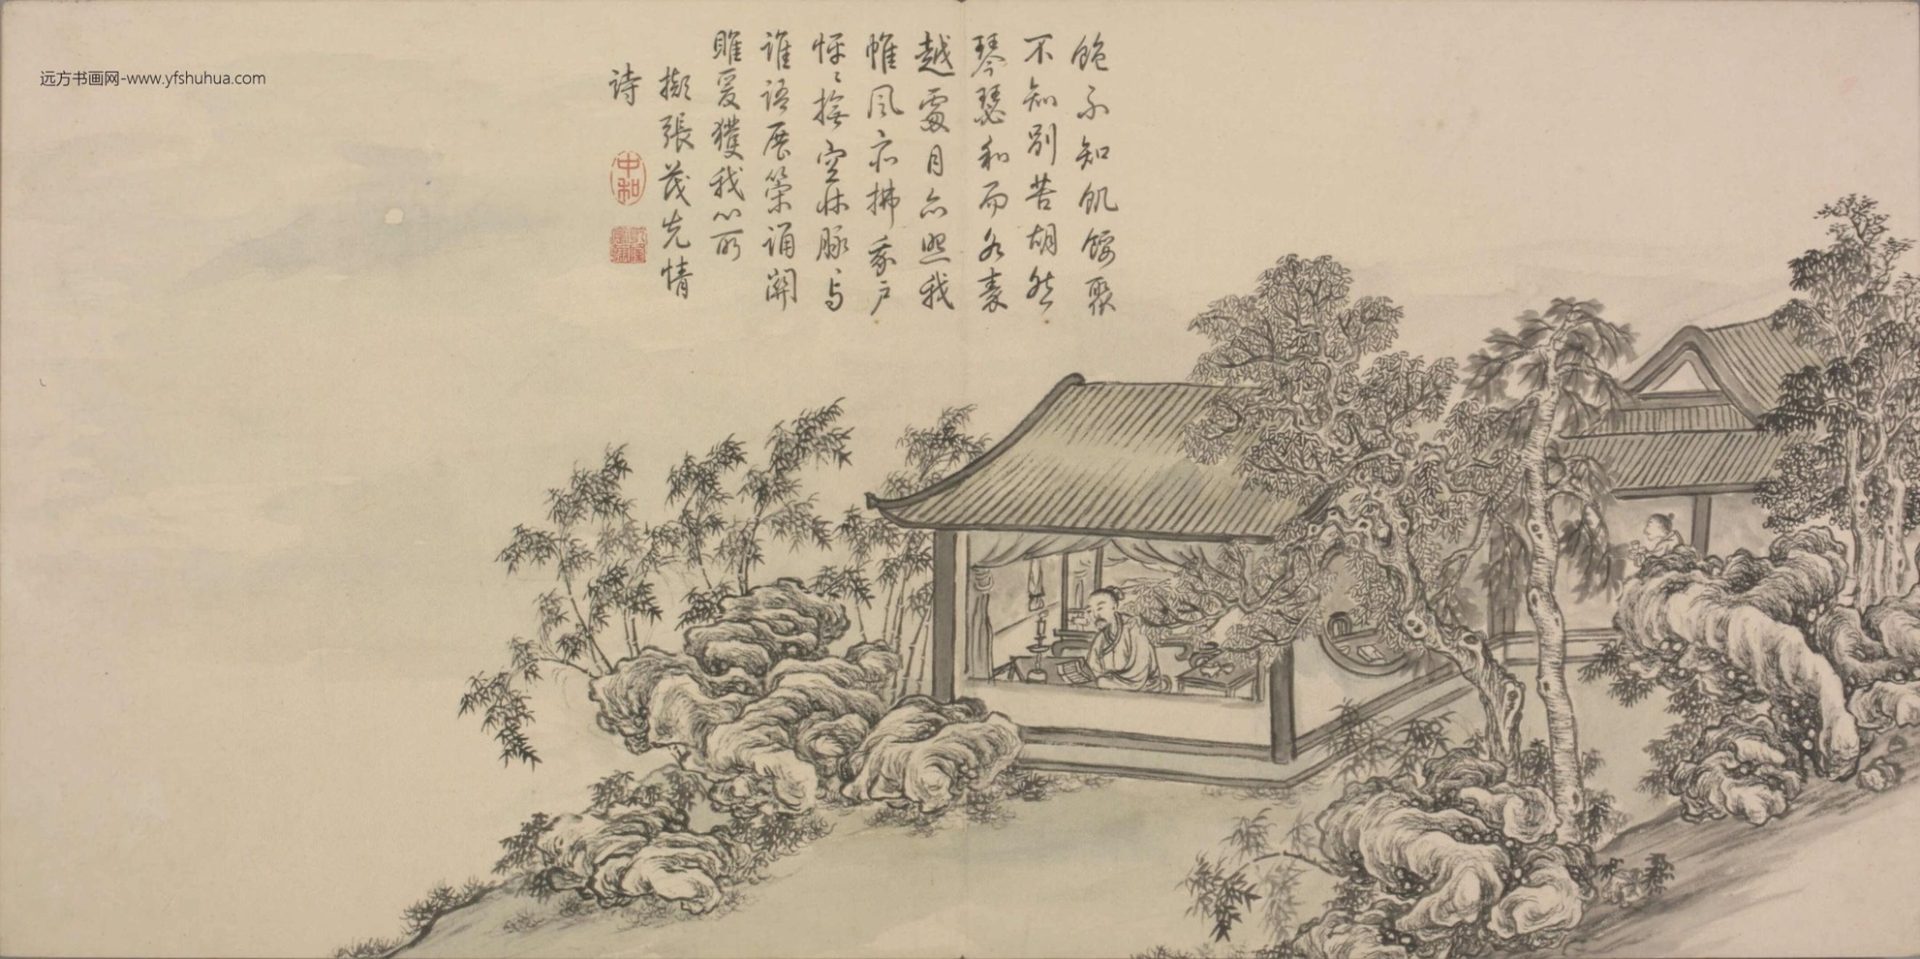 远方书画网-www.yfshuhua.com
飽不知飢餒聚
不知別苦胡然
琴瑟和而秦
越處月亦照我
帷風亦拂我戶
怦〻撫空牀脉与
誰語展誦關
雎爰獲我心所
擬張茂先情
詩
中和